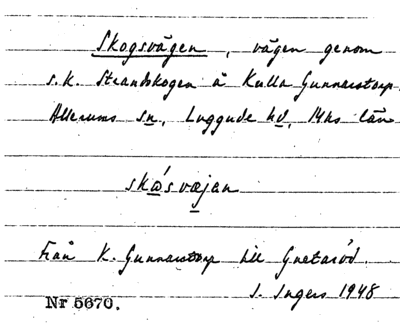 Skogsvägen, vägen genom
s.k. Strandskogen å Kulla Gunnarstorp
Allerums sn., Luggude hd, Mhs län
skɷ´svæjan
Från K. Gunnarstorp till Gretasröd.
I. Ingers 1948
Nr 5670.